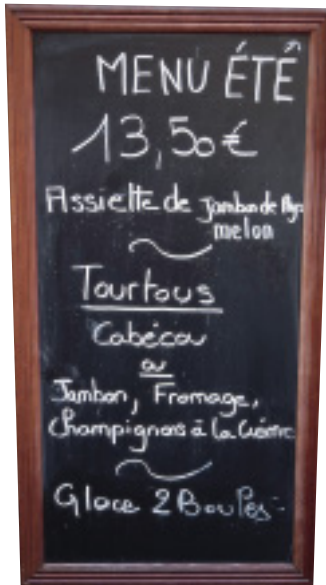 MENU ÉTÉ
13,50€
Assiette de Jambon de Pays
melon
Tourtous
Cabécou
ou
Jambon, Fromage,
Champignons à la Crème
Glace 2 Boules